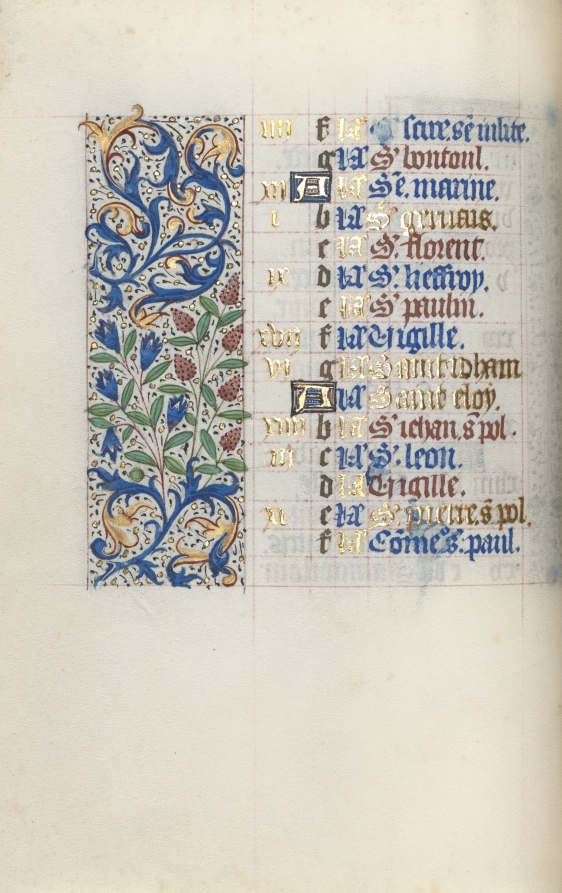 iiii f kl' sē iulite.
g kl' S' bontoul.
xii A kl' S'e. marine.
i b kl' S' geruais.
c kl' S' florent.
ix d kl' S' lieffroy.
e kl' S' paulin.
xvii f kl' Uigille.
vi g kl' Saint Iehan
A kl' Saint eloy.
xiiii b kl' S' iehan. s̄ pol.
iii c kl' S'. leon.
d kl' Uigille.
xi e kl' S' pierre. s̄ pol.
f kl' Cōme s'. paul.